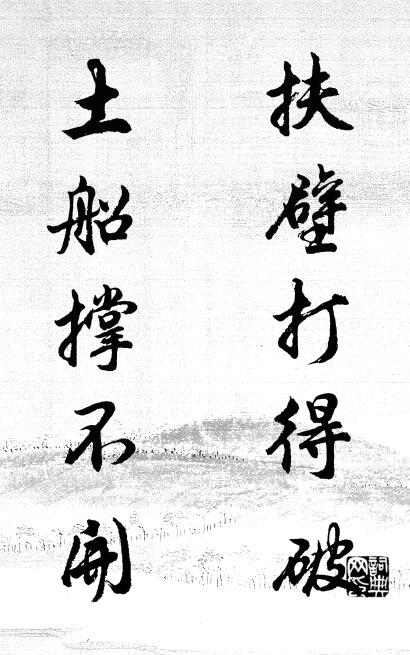 扶壁打得破
土船撑不开
詞典网